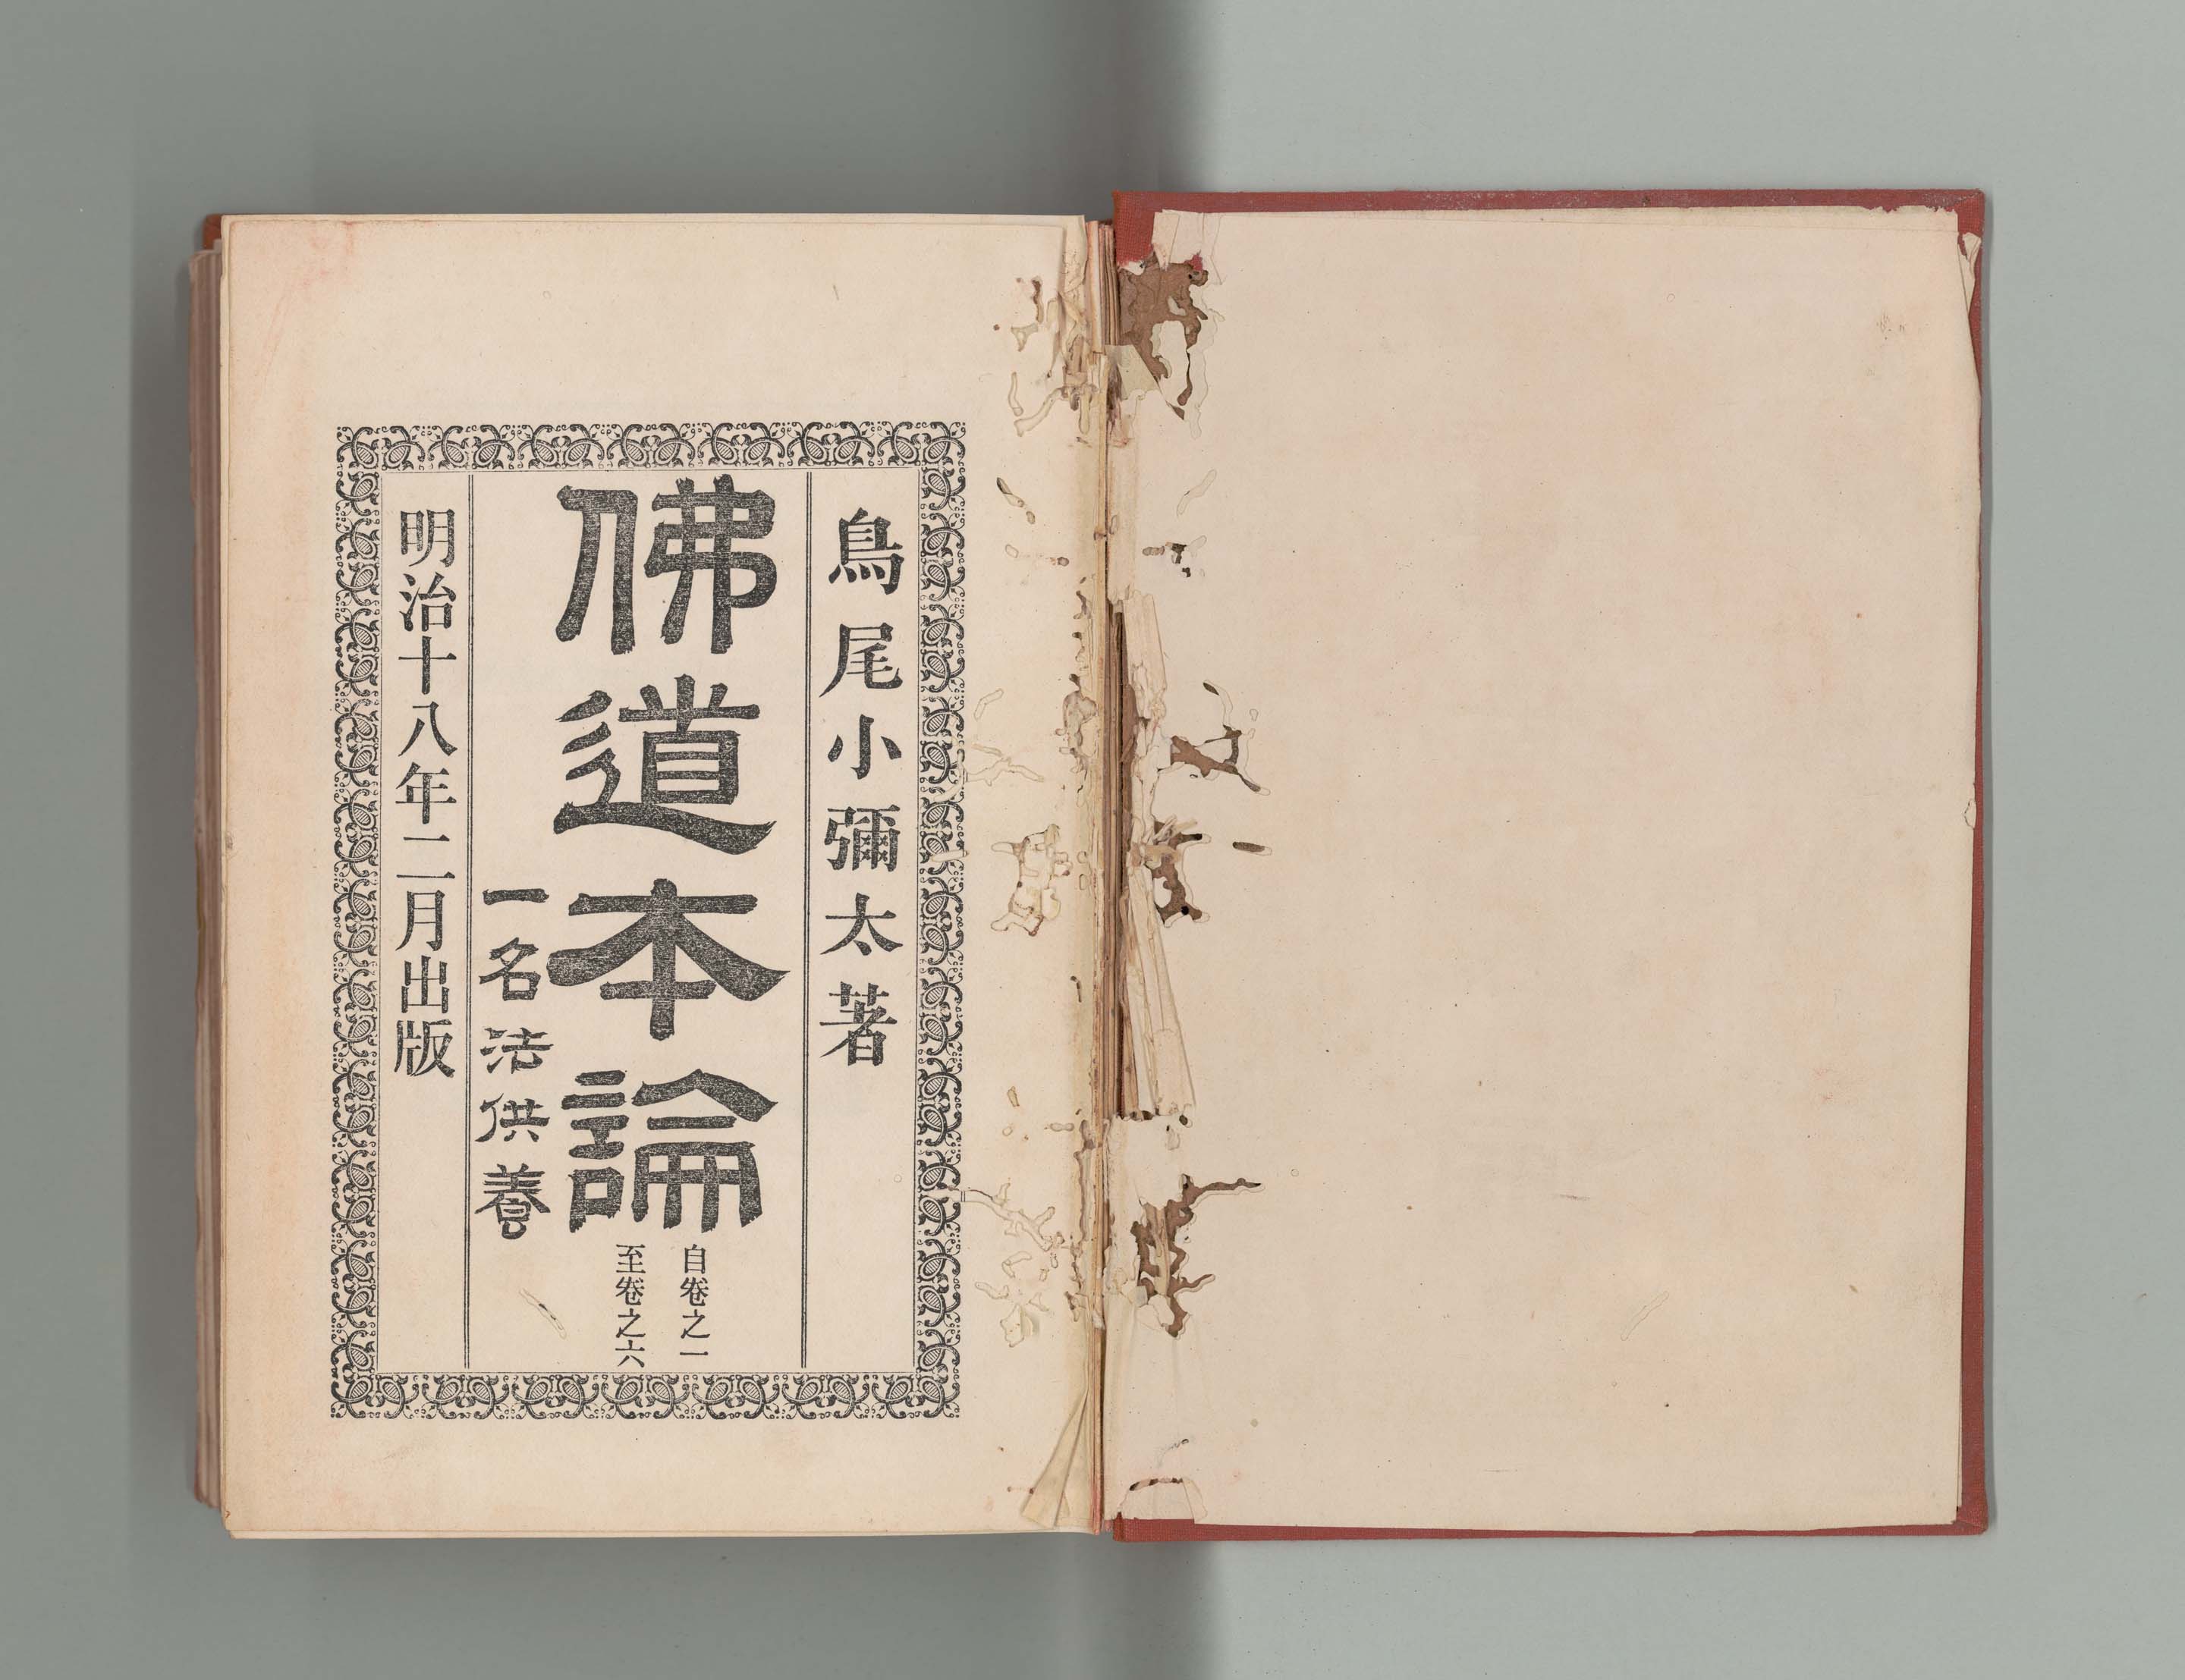 鳥尾小彌太著
佛道本論
自卷之一
至卷之六
一名法供養
明治十八年二月出版